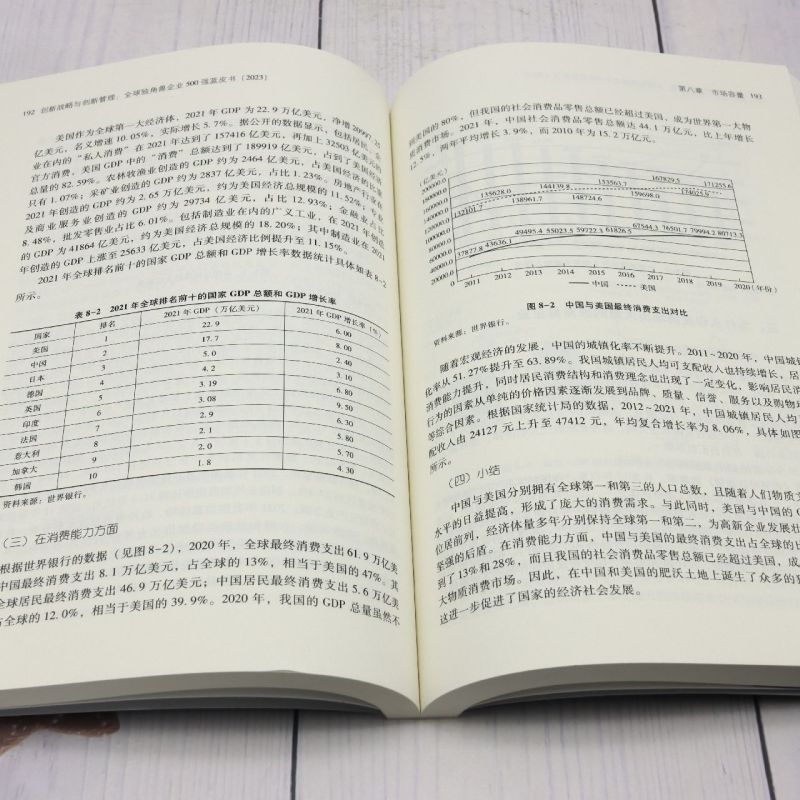 192 创新战略与创新管理：全球独角兽企业500强蓝皮书（2023）
美国作为全球第一大经济体，2021年GDP为22.9万亿美元，净增20997.25
亿美元，名义增速10.05%，实际增长5.7%。据公开的数据显示，包括居民、企
业在内的“私人消费”在2021年达到了157416亿美元，再加上32503亿美元的
官方消费，美国GDP中的“消费”总额达到了189919亿美元，占到了美国经济
总量的82.59%。农林牧渔业创造的GDP约为2464亿美元，占美国经济的比重
只有1.07%；采矿业创造的GDP约为2837亿美元，占比1.23%。房地产行业在
2021年创造的GDP约为2.65万亿美元，约为美国经济总规模的11.52%；专业
及商业服务业创造的GDP约为29734亿美元，占比12.93%；金融业占比
8.48%，批发零售业占比6.01%。包括制造业在内的广义工业，在2021年创造
的GDP为41864亿美元，约为美国经济总规模的18.20%；其中制造业在2021
年创造的GDP上涨至25633亿美元，占美国经济比例提升至11.15%。
2021年全球排名前十的国家GDP总额和GDP增长率数据统计具体如表8-2
所示。
表8-2 2021年全球排名前十的国家GDP总额和GDP增长率
国家 排名 2021年GDP（万亿美元） 2021年GDP增长率（%）
美国 1 22.9 6.00
中国 2 17.7 8.00
日本 3 5.0 2.40
德国 4 4.2 3.10
英国 5 3.19 6.80
印度 6 3.08 9.50
法国 7 2.9 6.30
意大利 8 2.1 5.80
加拿大 9 2.0 5.70
韩国 10 1.8 4.30
资料来源：世界银行。
（三）在消费能力方面
根据世界银行的数据（见图8-2），2020年，全球最终消费支出61.9万亿美
中国最终消费支出8.1万亿美元，占全球的13%，相当于美国的47%。其
全球居民最终消费支出46.9万亿美元；中国居民最终消费支出5.6万亿美
占全球的12.0%，相当于美国的39.9%。2020年，我国的GDP总量虽然不
第八章 市场容量 193
到美国的80%，但我国的社会消费品零售总额已经超过美国，成为世界第一大物
质消费市场。2021年，中国社会消费品零售总额达44.1万亿元，比上年增长
12.5%，两年平均增长3.9%，而2010年为15.2万亿元。
（亿美元）
200000.0
180000.0
160000.0
140000.0
120000.0
100000.0
80000.0
60000.0
40000.0
20000.0
132101.7 135628.0 138961.7 144139.8 148724.6 153563.7 159698.0 167829.5 174025.9 171255.6
37877.8 43636.1 49495.4 55023.5 59722.3 61826.5 67544.3 76501.7 79994.2 80713.3
2011 2012 2013 2014 2015 2016 2017 2018 2019 2020（年份）
中国 美国
图8-2 中国与美国最终消费支出对比
资料来源：世界银行。
随着宏观经济的发展，中国的城镇化率不断提升。2011~2020年，中国城镇
化率从51.27%提升至63.89%。我国城镇居民人均可支配收入也持续增长，居
消费能力提升，同时居民消费结构和消费理念也出现了一定变化，影响居民消
行为的因素从单纯的价格因素逐渐发展到品牌、质量、信誉、服务以及购物环
等综合因素。根据国家统计局的数据，2012~2021年，中国城镇居民人均可
配收入由24127元上升至47412元，年均复合增长率为8.06%，具体如图
所示。
（四）小结
中国与美国分别拥有全球第一和第三的人口总数，且随着人们物质文
水平的日益提高，形成了庞大的消费需求。与此同时，美国与中国的G
位居前列，经济体量多年分别保持全球第一和第二，为高新企业发展壮
坚强的后盾。在消费能力方面，中国与美国的最终消费支出占全球的比
到了13%和28%，而且我国的社会消费品零售总额已经超过美国，成
大物质消费市场。因此，在中国和美国的肥沃土地上诞生了众多的
这进一步促进了国家的经济社会发展。